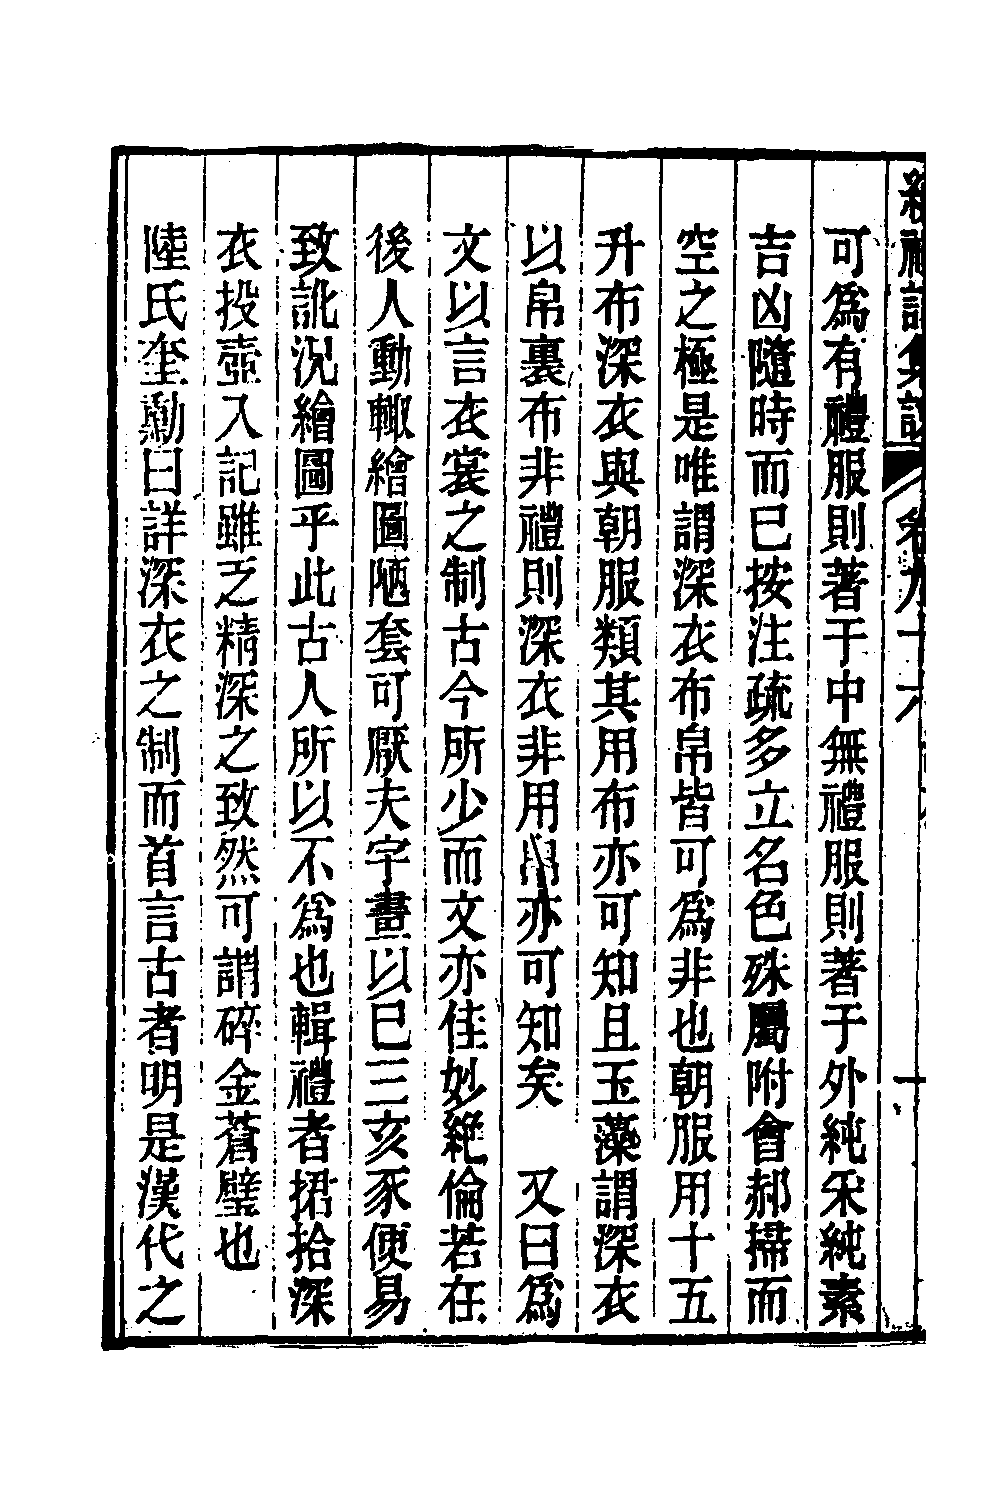 續禮記集說 卷九十六 十
可爲有禮服則著于中無禮服則著于外純采純素
吉凶隨時而已按注疏多立名色殊屬附會郝掃而
空之極是唯謂深衣布帛皆可爲非也朝服用十五
升布深衣與朝服類其用布亦可知且玉藻謂深衣
以帛裏布非禮則深衣非用帛亦可知矣　又曰爲
文以言衣裳之制古今所少而文亦佳妙絶倫若在
後人動輙繪圖陋套可厭夫字畫以巳三亥豕便易
致訛況繪圖乎此古人所以不爲也輯禮者捃拾深
衣投壺入記雖乏精深之致然可謂碎金蒼璧也
陸氏奎勳曰詳深衣之制而首言古者明是漢代之